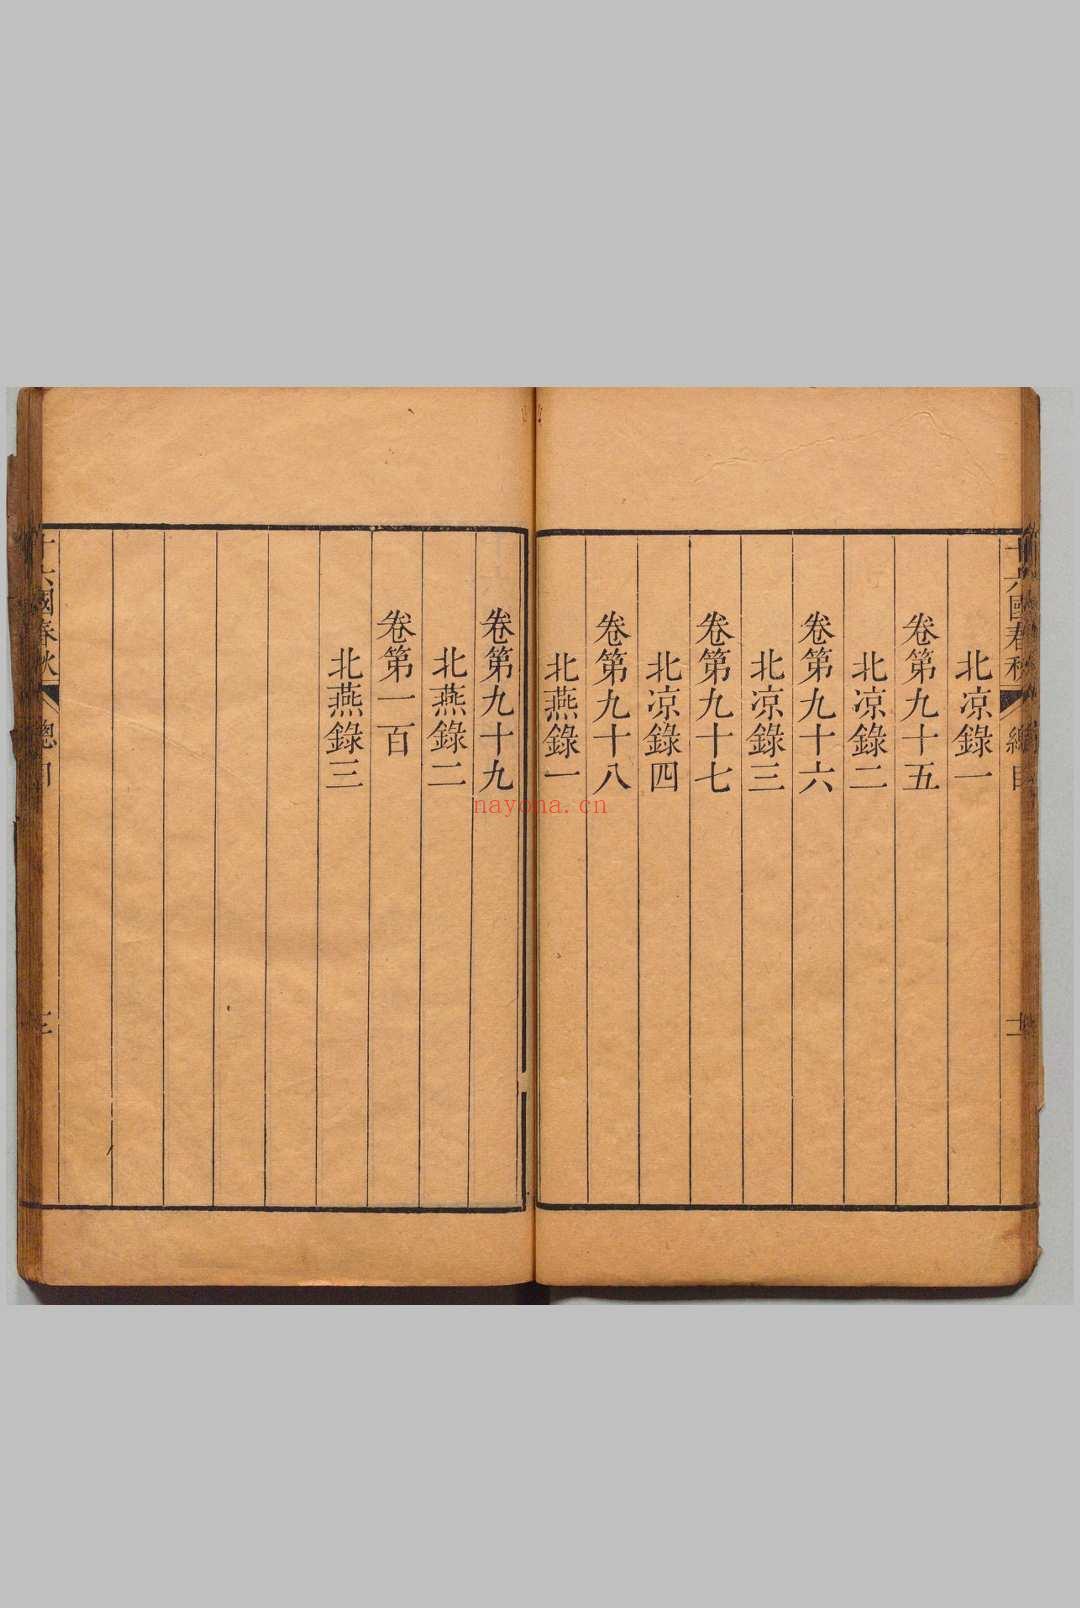 十六國春秋
總目
十二
北凉錄一
卷第九十五
北凉錄二
卷第九十六
北凉錄三
卷第九十七
北凉錄四
卷第九十八
北燕錄一
卷第九十九
北燕錄二
卷第一百
北燕錄三
十六國春秋
總目
nayona.cn